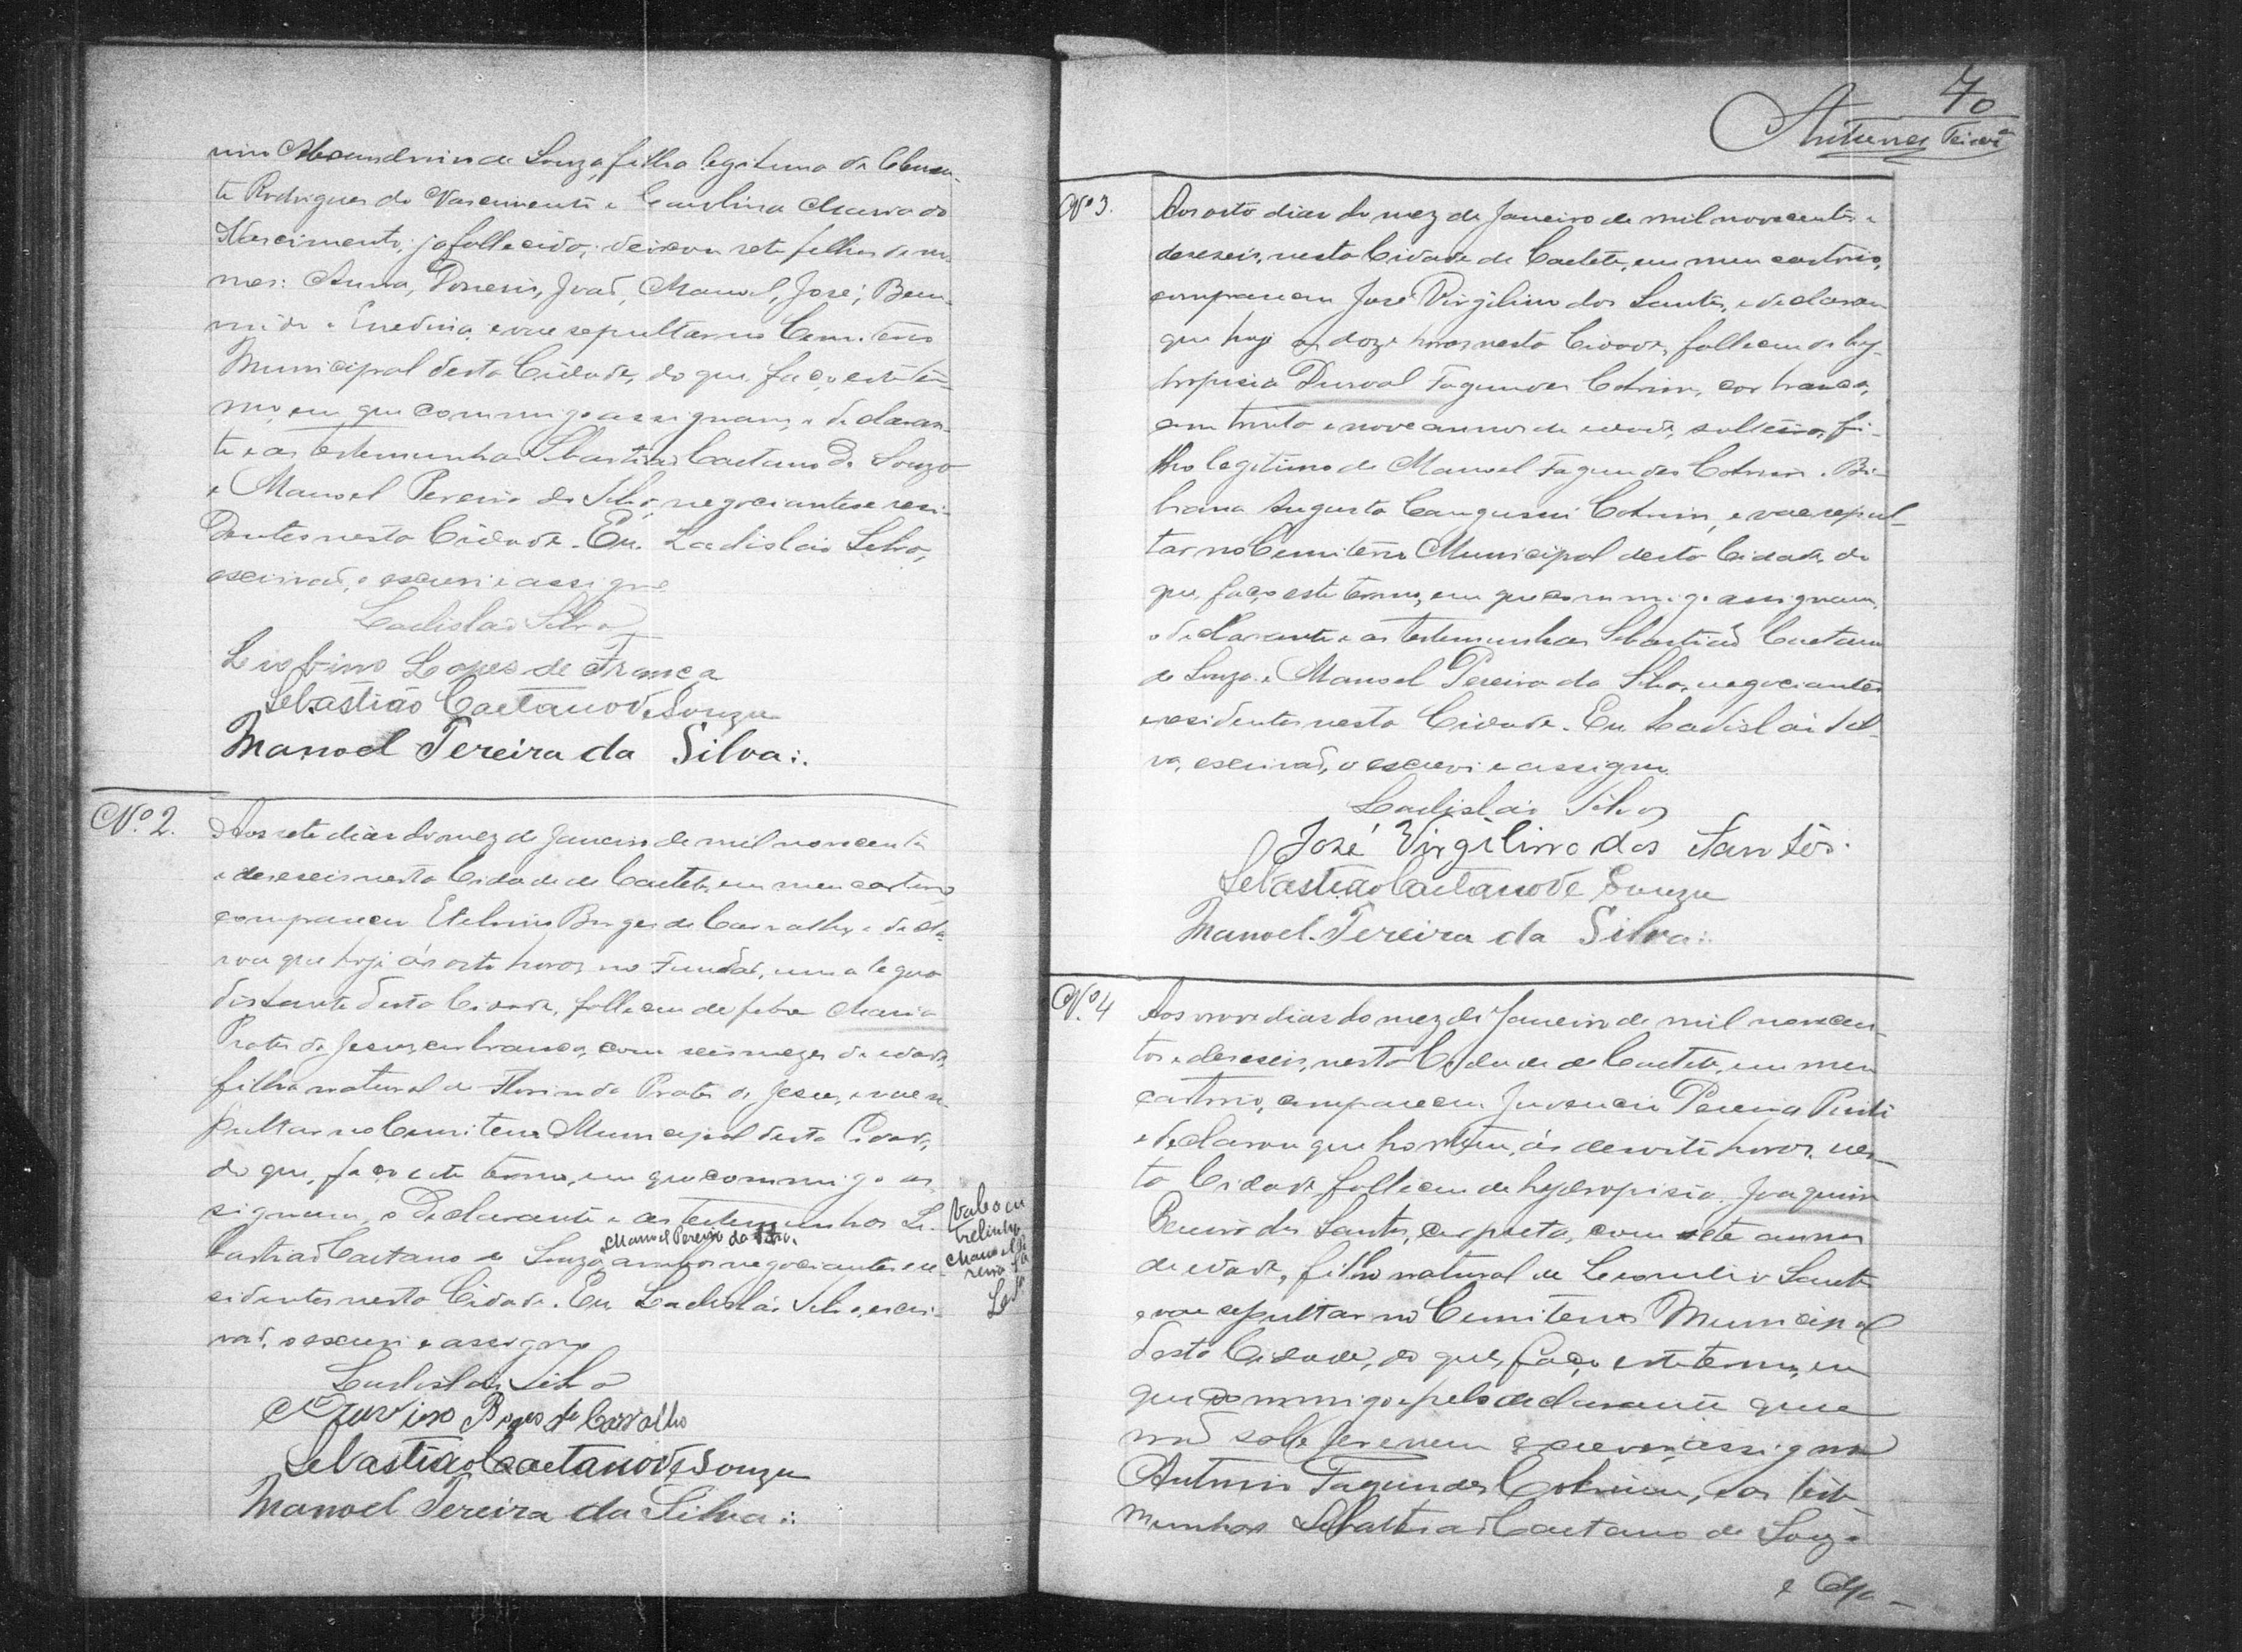 nino Alexandrino de Souza, filha legitima de Clemen-
te Rodrigues do Nascimento e Carolina Maria do
Nascimento, ja fallecido; deixou sete filhos de no-
mes: Anna, João, Manoel, José, Bem-
vinda e Enedina, e vae sepultar no Cemiterio
Municipal desta Cidade, do que, faço este ter-
mo, em que commigo assignam, o declaran-
te e as testemunhas Sebastião Caetano de Souza
e Manoel Pereira da Silva, negociantes e resi-
dentes nesta Cidade. Eu, Ladislão Silva,
escrivão, o escrevi e assigno
Ladislão Silva
Lopes de França
Sebastião Caetano de Souza
Manoel Pereira da Silva:.
Nº 2.
Aos sete dias do mez de Janeiro de mil novecentos
e deseseis nesta Cidade de Caeteté, em meu cartorio,
compareceu Etelvino Borges de Carvalho, e decla-
rou que hoje ás oito horas no Fundão, uma legua
distante desta Cidade, falleceu de febre Maria
Prates de Jesus, cor branca, com seis mezes de edade,
filha natural de Florinda Prates de Jesus, e vae se-
pultar no Cemiterio Municipal desta Cidade,
do que, faço este termo, em que commigo as-
signam, o declarante e as testemunhas Se-
bastião Caetano de Souza, Manoel Pereira da Silva, ambos negociantes e re-
sidentes nesta Cidade. Eu Ladislão Silva, escri-
vão, o escrevi e assigno
Vale a en
trelinha
Manoel Pe
reira da
Ladislão Silva
Borges de Carvalho
Sebastião Caetano de Souza
Manoel Pereira da Silva:.
70
Antunes Teixeira
Nº 3.
Aos oito dias do mez de Janeiro de mil novecentos e
deseseis, nesta Cidade de Caeteté, em meu cartorio,
compareceu José Virgilino dos Santos, e declarou
que hoje as doze horas nesta Cidade, falleceu de hy-
dropisia Durval Fagundes Cotrim, cor branca,
com trinta e nove annos de edade, solteiro, fi-
lho legitimo de Manoel Fagundes Cotrim e Bi-
biana Augusta Cangussú Cotrim, e vae sepul-
tar no Cemiterio Municipal desta Cidade, do
que, faço este termo, em que commigo assignam,
o declarante e as testemunhas Sebastião Caetano
de Souza e Manoel Pereira da Silva, negociantes
e residentes nesta Cidade. Eu Ladislão Sil-
va, escrivão, o escrevi e assigno.
Ladislão Silva
José Virgilino dos Santos.
Sebastião Caetano de Souza
Manoel Pereira da Silva:.
Nº 4
Aos nove dias do mez de Janeiro de mil novecen-
tos e deseseis, nesta Cidade de Caeteté, em meu
cartorio, compareceu Juvencio Pereira
e declarou que hontem, ás desoito horas, nes-
ta Cidade falleceu de hydropisia, Joaquim
Pereira dos Santos, cor preta, com sete annos
de edade, filho natural de Santos
e vae sepultar no Cemiterio Municipal
desta Cidade, do que, faço este termo, em
que commigo e pelo declarante que
não sabe ler e nem escrever, assigna
Antonio Fagundes Cotrim, e as teste-
munhas Sebastião Caetano de Souza